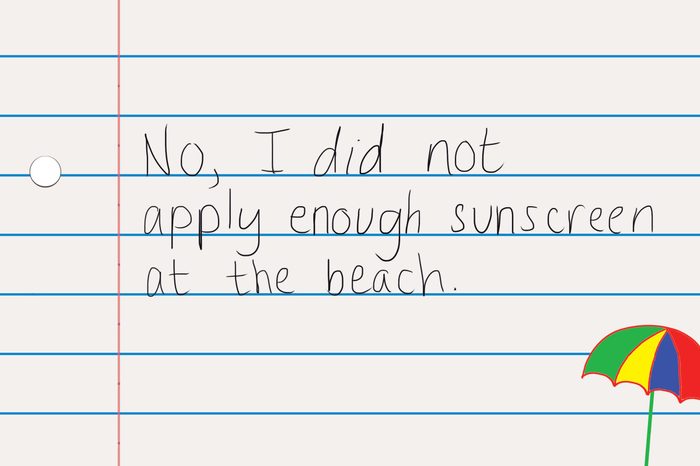 No, I did not
apply enough sunscreen
at the beach.